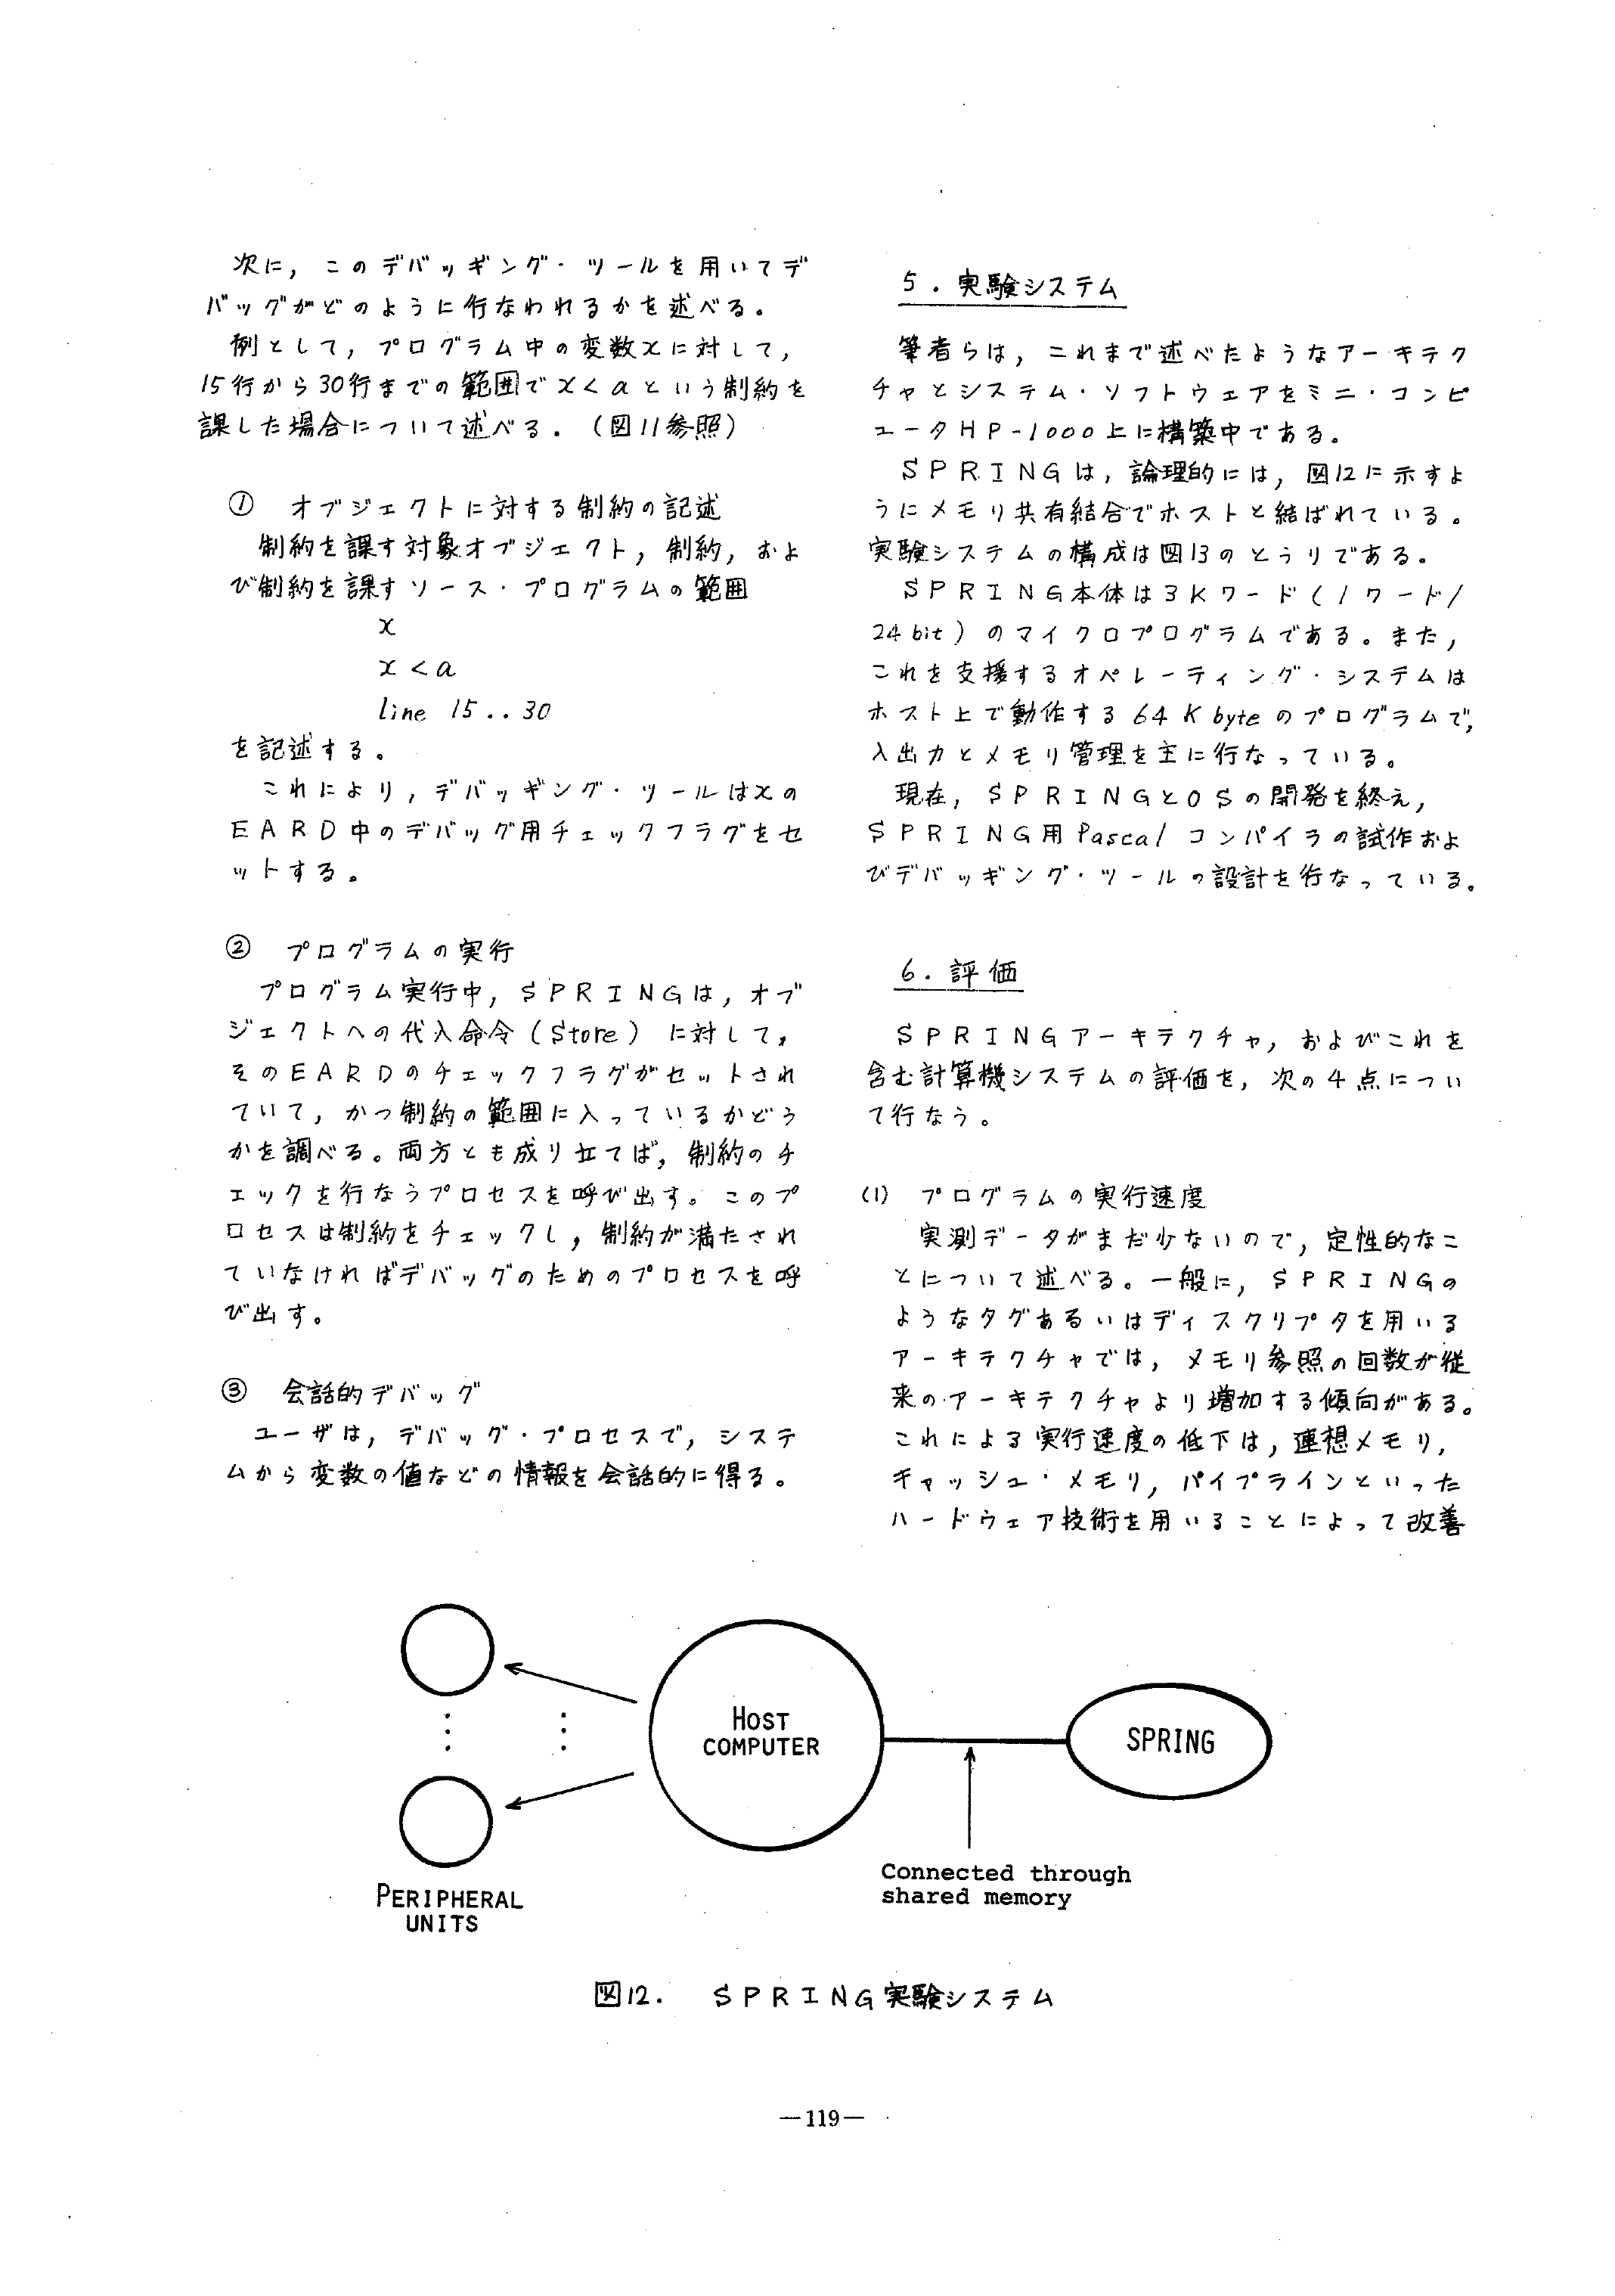 次に，このデバッギング・ツールを用いてデ
バッグがどのように行なわれるかを述べる。
例として，プログラム中の変数xに対して，
15行から30行までの範囲でx＜aという制約を
課した場合について述べる．（図11参照）
① オブジェクトに対する制約の記述
制約を課す対象オブジェクト，制約，およ
び制約を課すソース・プログラムの範囲
x
x＜a
line 15..30
を記述する。
これにより，デバッギング・ツールはxの
EARD中のデバッグ用チェックフラグをセ
ットする。
② プログラムの実行
プログラム実行中，SPRINGは，オブ
ジェクトへの代入命令（Store）に対して，
そのEARDのチェックフラグがセットされ
ていて，かつ制約の範囲に入っているかどう
かを調べる。両方とも成り立てば，制約のチ
ェックを行なうプロセスを呼び出す。このプ
ロセスは制約をチェックし，制約が満たされ
ていなければデバッグのためのプロセスを呼
び出す。
③ 会話的デバッグ
ユーザは，デバッグ・プロセスで，システ
ムから変数の値などの情報を会話的に得る。
5．実験システム
筆者らは，これまで述べたようなアーキテク
チャとシステム・ソフトウェアをミニ・コンピ
ュータHP-1000上に構築中である。
SPRINGは，論理的には，図12に示すよ
うにメモリ共有結合でホストと結ばれている。
実験システムの構成は図13のとうりである。
SPRING本体は3Kワード（1ワード/
24bit）のマイクロプログラムである。また，
これを支援するオペレーティング・システムは
ホスト上で動作する64Kbyteのプログラムで，
入出力とメモリ管理を主に行なっている。
現在，SPRINGとOSの開発を終え，
SPRING用Pascalコンパイラの試作およ
びデバッギング・ツールの設計を行なっている。
6．評価
SPRINGアーキテクチャ，およびこれを
含む計算機システムの評価を，次の4点につい
て行なう。
(1) プログラムの実行速度
実測データがまだ少ないので，定性的なこ
とについて述べる。一般に，SPRINGの
ようなタグあるいはディスクリプタを用いる
アーキテクチャでは，メモリ参照の回数が従
来のアーキテクチャより増加する傾向がある。
これによる実行速度の低下は，連想メモリ，
キャッシュ・メモリ，パイプラインといった
ハードウェア技術を用いることによって改善
HOST
COMPUTER
SPRING
Connected through
shared memory
PERIPHERAL
UNITS
図12. SPRING実験システム
—119—